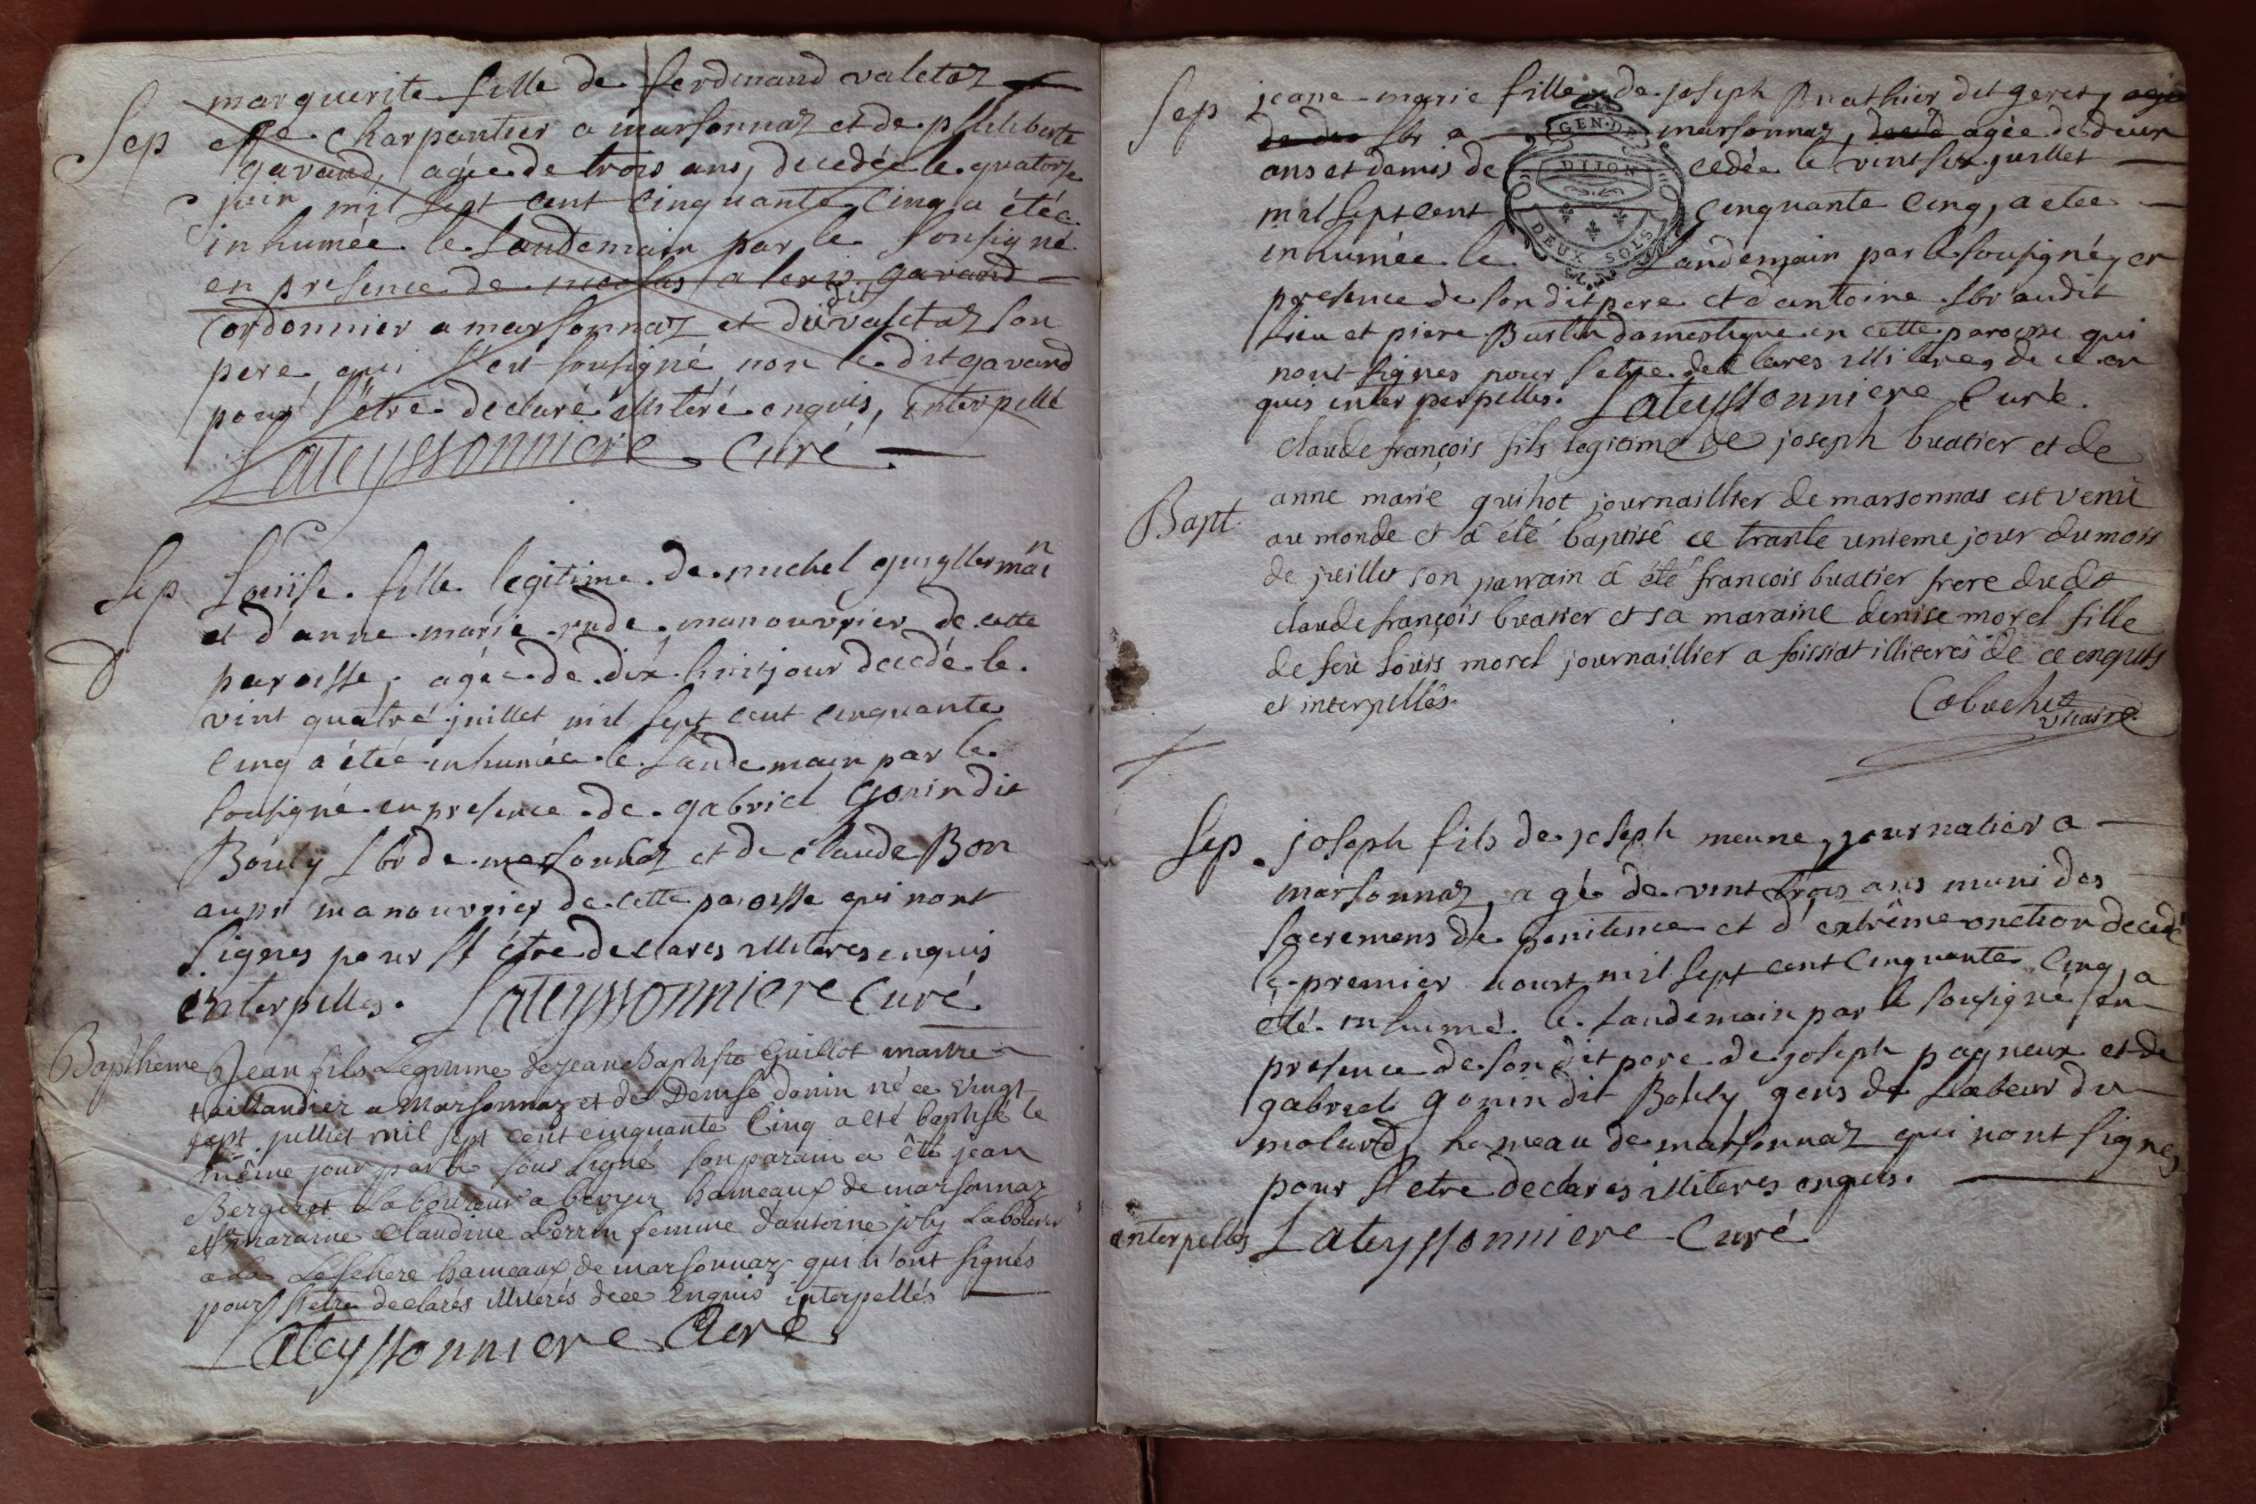 marguerite fille de ferdinand valetaz
Sep
charpantier a marsonnaz et de philiberte
gavand, agée de trois ans, decedée le quatorze
juin mil sept cent cinquante cinq a étée
inhumée le landemain par le sousigné
en presence de nicolas gavand
cordonnier a marsonnaz et dudit valetaz son
pere qui s'est sousigné non le dit gavand
pour s'être declaré illiteré enquis, interpellé
Lateyssonniere Curé
Sep
Louise fille legitime de michel guyllerman
et d'anne marie manouvrier de cette
paroisse, agée de dix huit jour decedé le
vint quatre juillet mil sept cent cinquante
cinq a étée inhumée le landemain par le
sousigné en presence de gabriel gonin dit
Bouly lbr de marsonnaz et de claude Bon
aussi manouvrier de cette paroisse qui n'ont
signes pour s'être declares illiteres enquis
interpelles. Lateyssonniere Curé
Baptheme
Jean fils Legitime de jean Baptiste Guillot maitre
taillandier a Marsonnaz et de Denise donin né ce vingt
sept juilliet mil sept cent cinquante cinq a eté baptisé le
même jour par le sous signé son parain a êté jean
Bergeret Laboureur a hameaux de marsonnaz
et maraine Claudine Perrin femme d'antoine joly Laboureur
a la Leschere hameaux de marsonnaz qui n'ont signés
pour s'etre declarés illiterés de ce Enquis interpellés
Lateyssonniere Curé
Sep
jeane-marie fille de joseph Buathier dit geret,
GEN. DE
lbr a marsonnaz, agée de deux
DIJON
ans et demis decedée le vint six juillet
mil sept cent cinquante cinq, a etée
DEUX SOLS
inhumée le Landemain par le sousigné, en
presence de son dit pere et d'antoine lbr audit
lieu et piere Burlin domestique en cette paroisse qui
n'ont signes pour s'etre declares illiteres, de ce en
quis interperpelles. Lateyssonniere Curé.
Claude françois fils legitime de joseph buatier et de
Bapt.
anne marie guihot journaillier de marsonnas est venu
au monde et a été baptisé ce trante unieme jour du mois
de juillet son parrain a été francois buatier frere dudt
claude françois buatier et sa maraine denise morel fille
de feu louis morel journaillier a foissiat illiterés de ce enquis
et interpellés.
Cabuchet
vicaire
Sep.
joseph fils de joseph meune, journalier a
marsonnaz, agé de vint trois ans muni des
sacremens de penitence et d'extrême onction decedé
le premier aoust mil sept cent cinquante cinq, a
été inhumé le landemain par le sousigné en
presence de son dit pere de joseph pagneux et de
gabriel gonin dit Bouly gens de Labeur du
molard, hameau de marsonnaz qui n'ont signes
pour s'etre declares illiteres enquis.
interpelles Lateyssonniere Curé